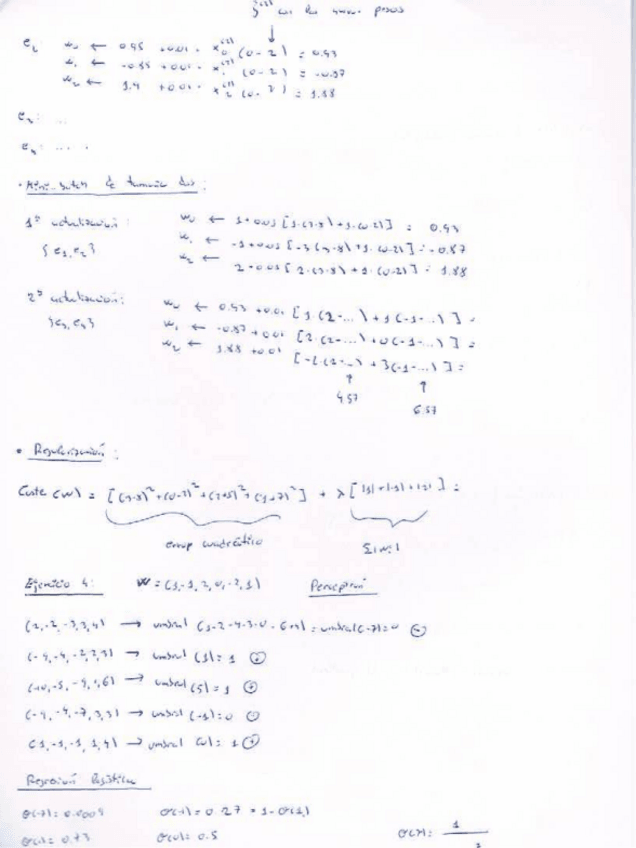 con los nuevos pesos
e₂ w₀ ← 0.95 + 0.01 · x₀⁽²⁾ (0-2) = 0.93
w₁ ← -0.85 + 0.01 · x₁⁽²⁾ (0-2) = -0.87
w₂ ← 1.9 + 0.01 · x₂⁽²⁾ (0-2) = 1.88
e₃: ...
e₄: ....
· Mini-batch de tamaño dos:
1ª actualización: w₀ ← 1+0.01 [1·(3-8)+1·(0-2)] = 0.93
{e₁,e₂} w₁ ← -1+0.01 [-3(3-8)+1·(0-2)] = -0.87
w₂ ← 2+0.01 [2·(3-8)+1·(0-2)] = 1.88
2ª actualización: w₀ ← 0.93 +0.01 [1·(2-...)+1(-1-...)] =
{e₃,e₄} w₁ ← -0.87 +0.01 [2·(2-...)+0(-1-...)] =
w₂ ← 1.88 +0.01 [-2·(2-...)+3(-1-...)] =
6.57
· Regularización:
Coste (w) = [(3-8)²+(0-2)²+(2+5)²+(1+7)²] + λ[|1|+|-1|+|2|] =
error cuadrático Σ|wᵢ|
Ejercicio 4: w = (1,-1,2,0,-2,1) Perceptrón
→ umbral (-7)=0 ⊖
→ umbral (1)= 1 ⊕
→ umbral (5)= 1 ⊕
→ umbral (-1)=0 ⊖
→ umbral (0)= 1 ⊕
Regresión logística
σ(-7)= 0.0009 σ(-1)= 0.27 = 1-σ(1)
σ(1)= 0.73 σ(0)= 0.5